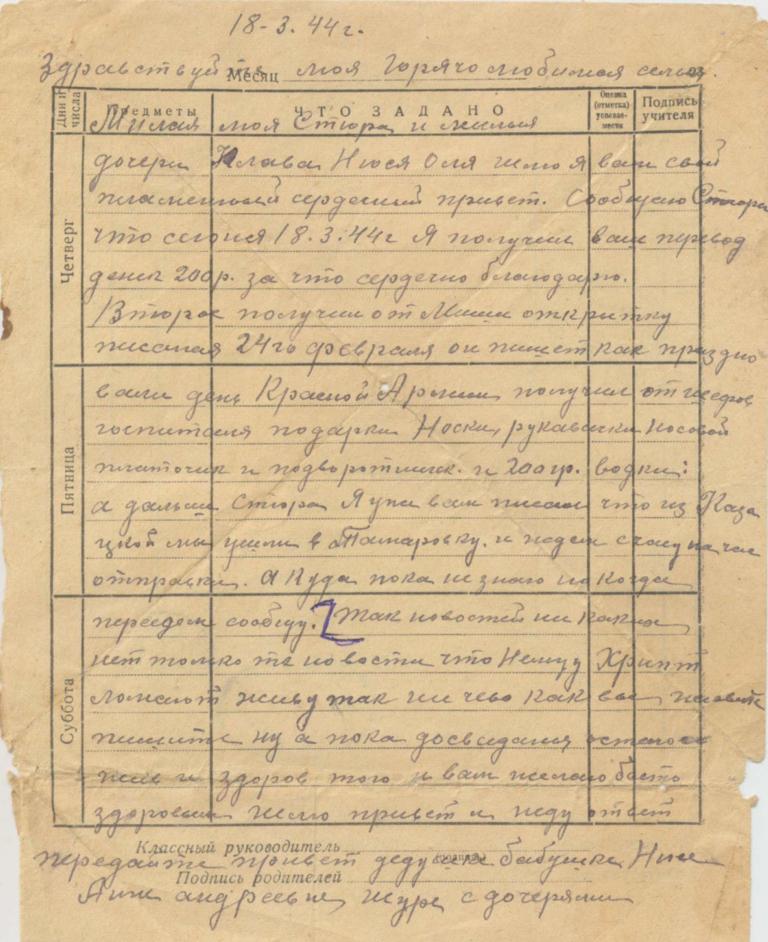 18-3.44г.
Здравствуйте моя горячо любимая семья.
Месяц
Дни и числа Предметы ЧТО ЗАДАНО Оценка (отметка) успевае-мости Подпись учителя
Милая моя Стюра и милыя
дочери Клава Нюся Оля шлю я вам свой
пламенный сердечный привет. Сообщаю Стюра
Четверг
что сегодня 18.3.44г Я получил ваш перевод
денег 200р. за что сердечно благодарю.
Второе получил от Миши открытку
писаная 24го февраля он пишет как праздно
вали день Красной Армии, получил от шефов
госпиталя подарки Носки, рукавички носовой
Пятница
платочик и подворотничк. и 200гр. водки:
а дальше Стюра Я уже вам писал что из Каза
цкой мы ушли в Томаровку. и
отправки. а Куда пока не знаю но когда
переедем сообщу. Так новостей ни каких
нет только те новости что Немцу Хрипт
Суббота
ломают живу так ни чево как вы живете
пишите ну а пока досвидания остаюсь
жив и здоров того и вам желаю быть
здоровым шлю привет и жду ответ
Классный руководитель
передайте привет дедушке бабушке Нине
Подпись родителей
Анне андреевне Шуре с дочерями